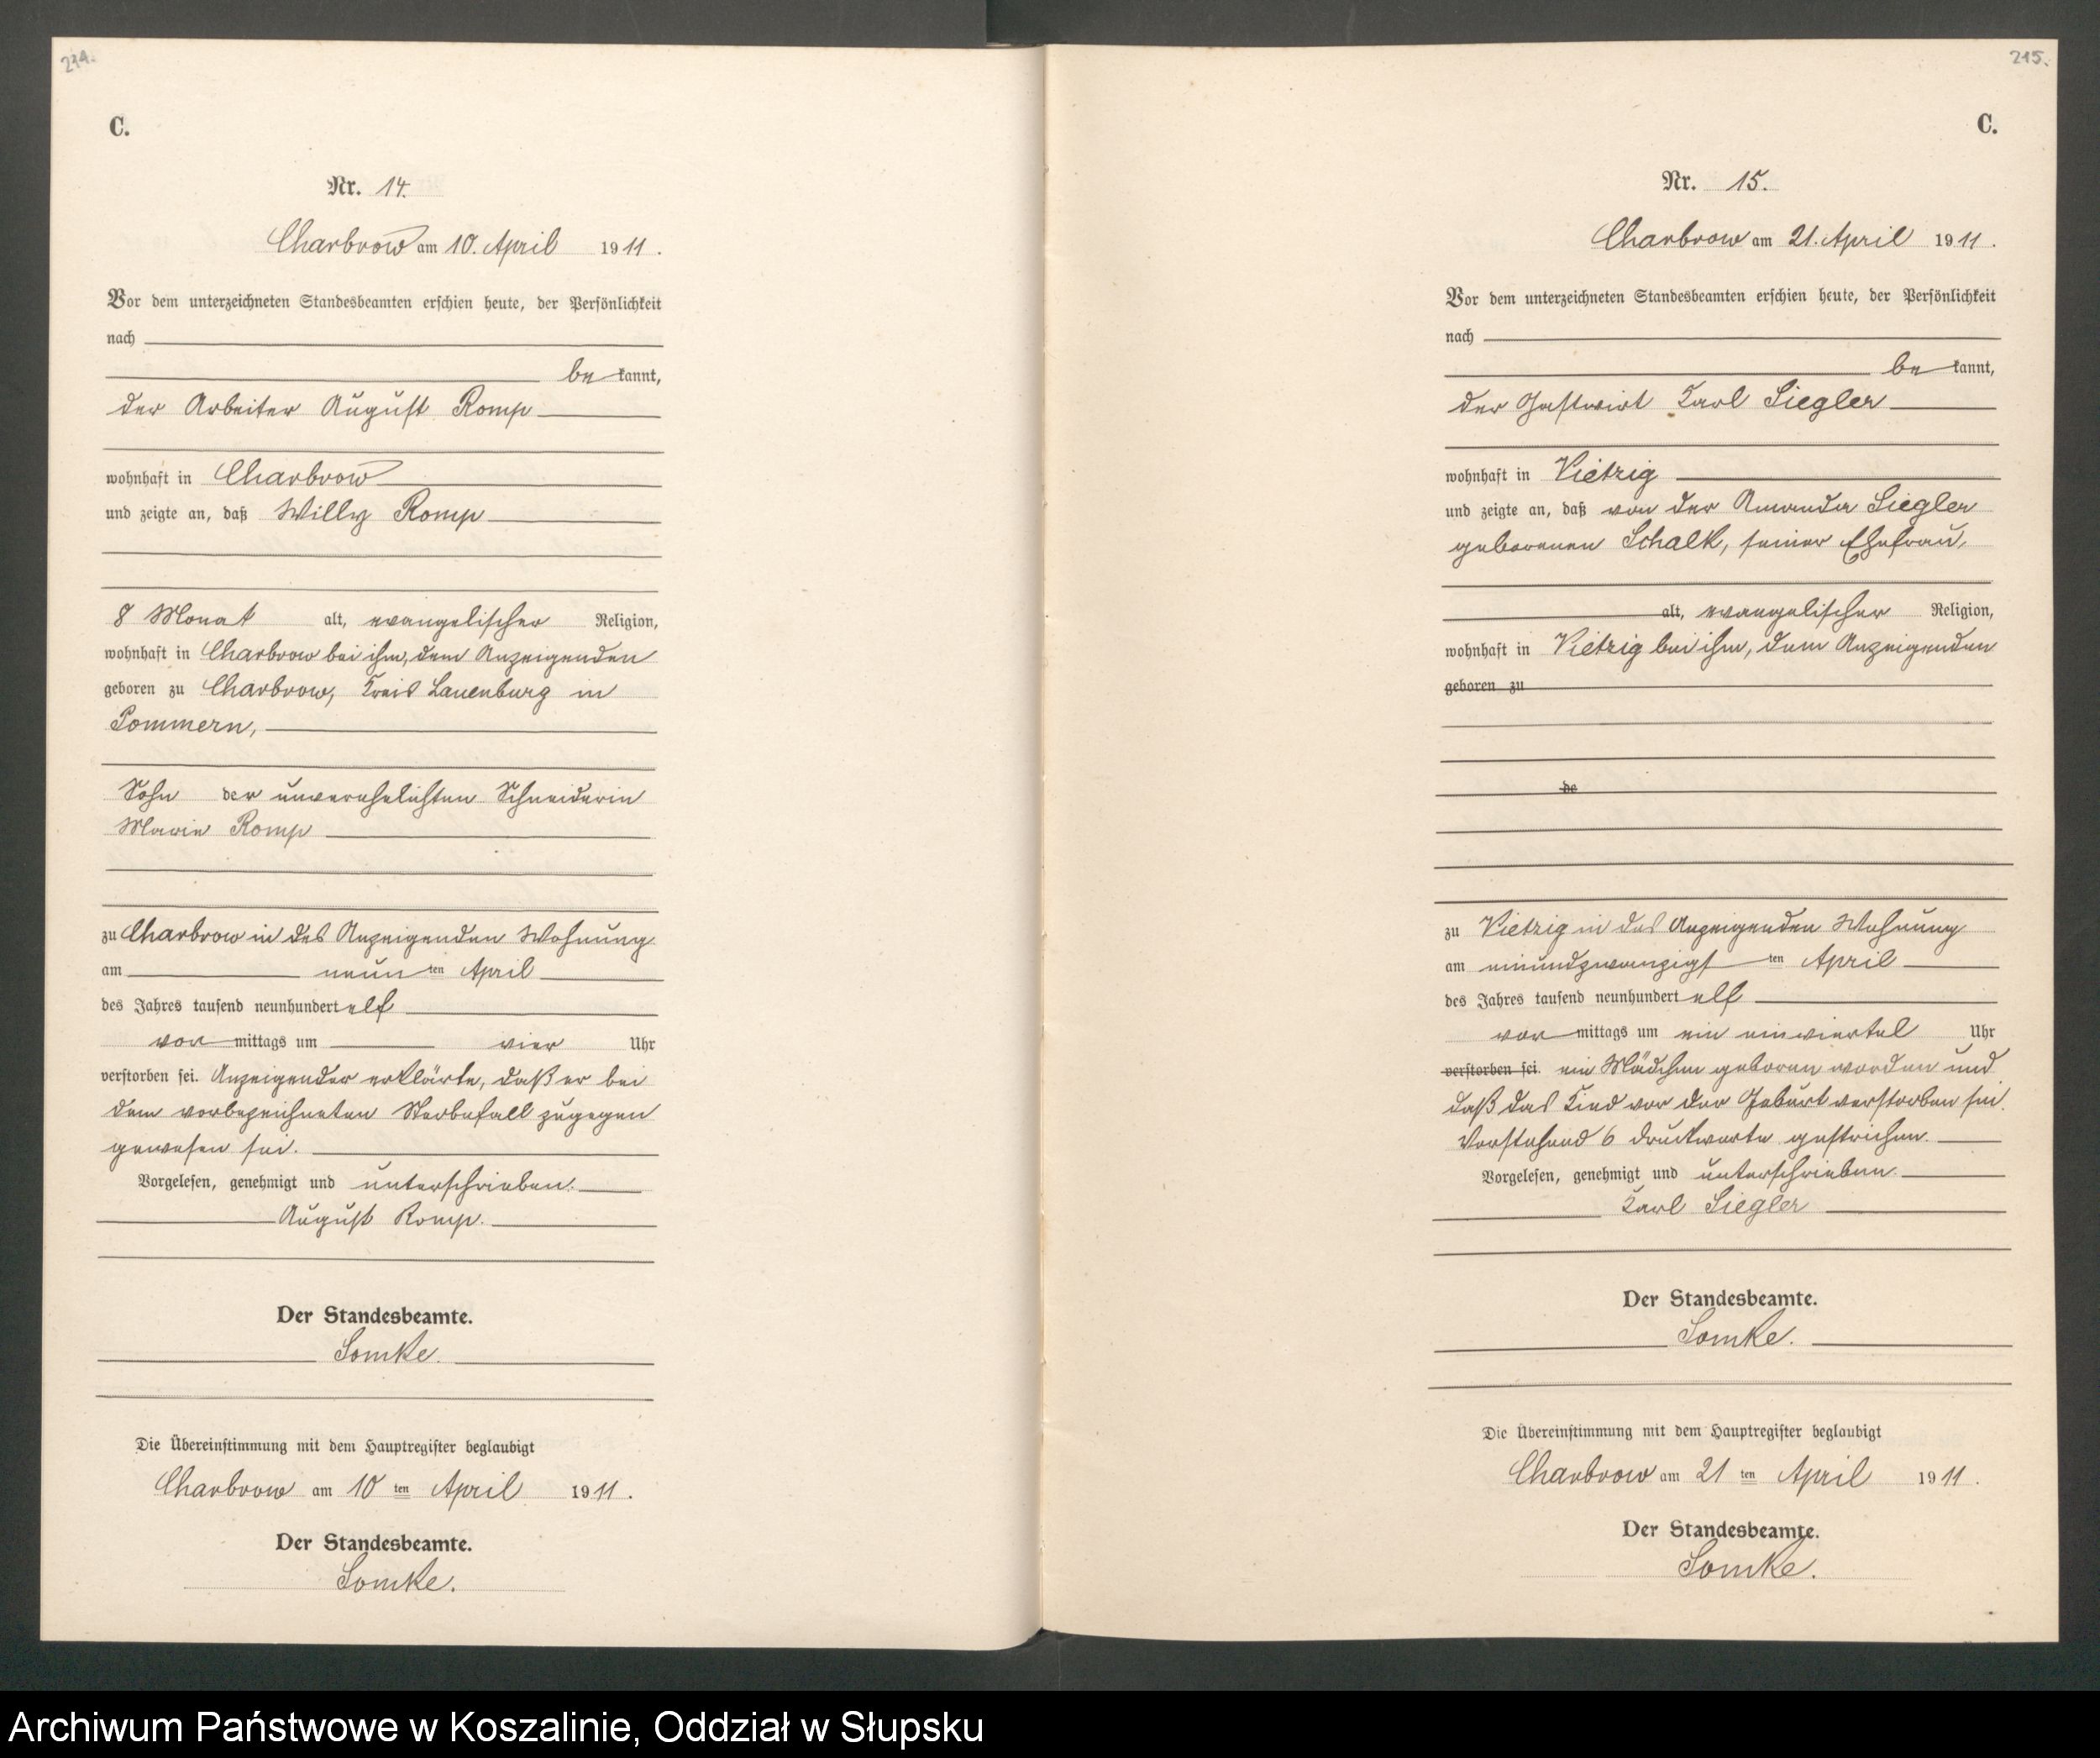 214.
C.
Nr. 14.
Charbrow am 10. April 1911.
Vor dem unterzeichneten Standesbeamten erschien heute, der Persönlichkeit
nach
be kannt,
der Arbeiter August Romp
wohnhaft in Charbrow
und zeigte an, daß Willy Romp
8 Monat alt, evangelischer Religion,
wohnhaft in Charbrow bei ihm, dem Anzeigenden
geboren zu Charbrow, Kreis Lauenburg in
Pommern,
Sohn der unverehelichten Schneiderin
Marie Romp
zu Charbrow in des Anzeigenden Wohnung
am neun ten April
des Jahres tausend neunhundert elf
vor mittags um vier Uhr
verstorben sei. Anzeigender erklärte, daß er bei
dem vorbezeichneten Sterbefall zugegen
gewesen sei.
Vorgelesen, genehmigt und unterschrieben.
August Romp.
Der Standesbeamte.
Lomke.
Die Übereinstimmung mit dem Hauptregister beglaubigt
Charbrow am 10 ten April 1911.
Der Standesbeamte.
Lomke.
215.
C.
Nr. 15.
Charbrow am 21. April 1911.
Vor dem unterzeichneten Standesbeamten erschien heute, der Persönlichkeit
nach
be kannt,
der Gastwirt Karl Siegler
wohnhaft in Vietzig
und zeigte an, daß von der Amanda Siegler
geborenen Schalk, seiner Ehefrau,
alt, evangelischer Religion,
wohnhaft in Vietzig bei ihm, dem Anzeigenden
geboren zu
de
zu Vietzig in des Anzeigenden Wohnung
am einundzwanzigst ten April
des Jahres tausend neunhundert elf
vor mittags um ein einviertel Uhr
verstorben sei. ein Mädchen geboren worden und
daß das Kind vor der Geburt verstorben sei.
Vorstehend 6 Druckworte gestrichen.
Vorgelesen, genehmigt und unterschrieben.
Karl Siegler
Der Standesbeamte.
Lomke.
Die Übereinstimmung mit dem Hauptregister beglaubigt
Charbrow am 21 ten April 1911.
Der Standesbeamte.
Lomke.
Archiwum Państwowe w Koszalinie, Oddział w Słupsku